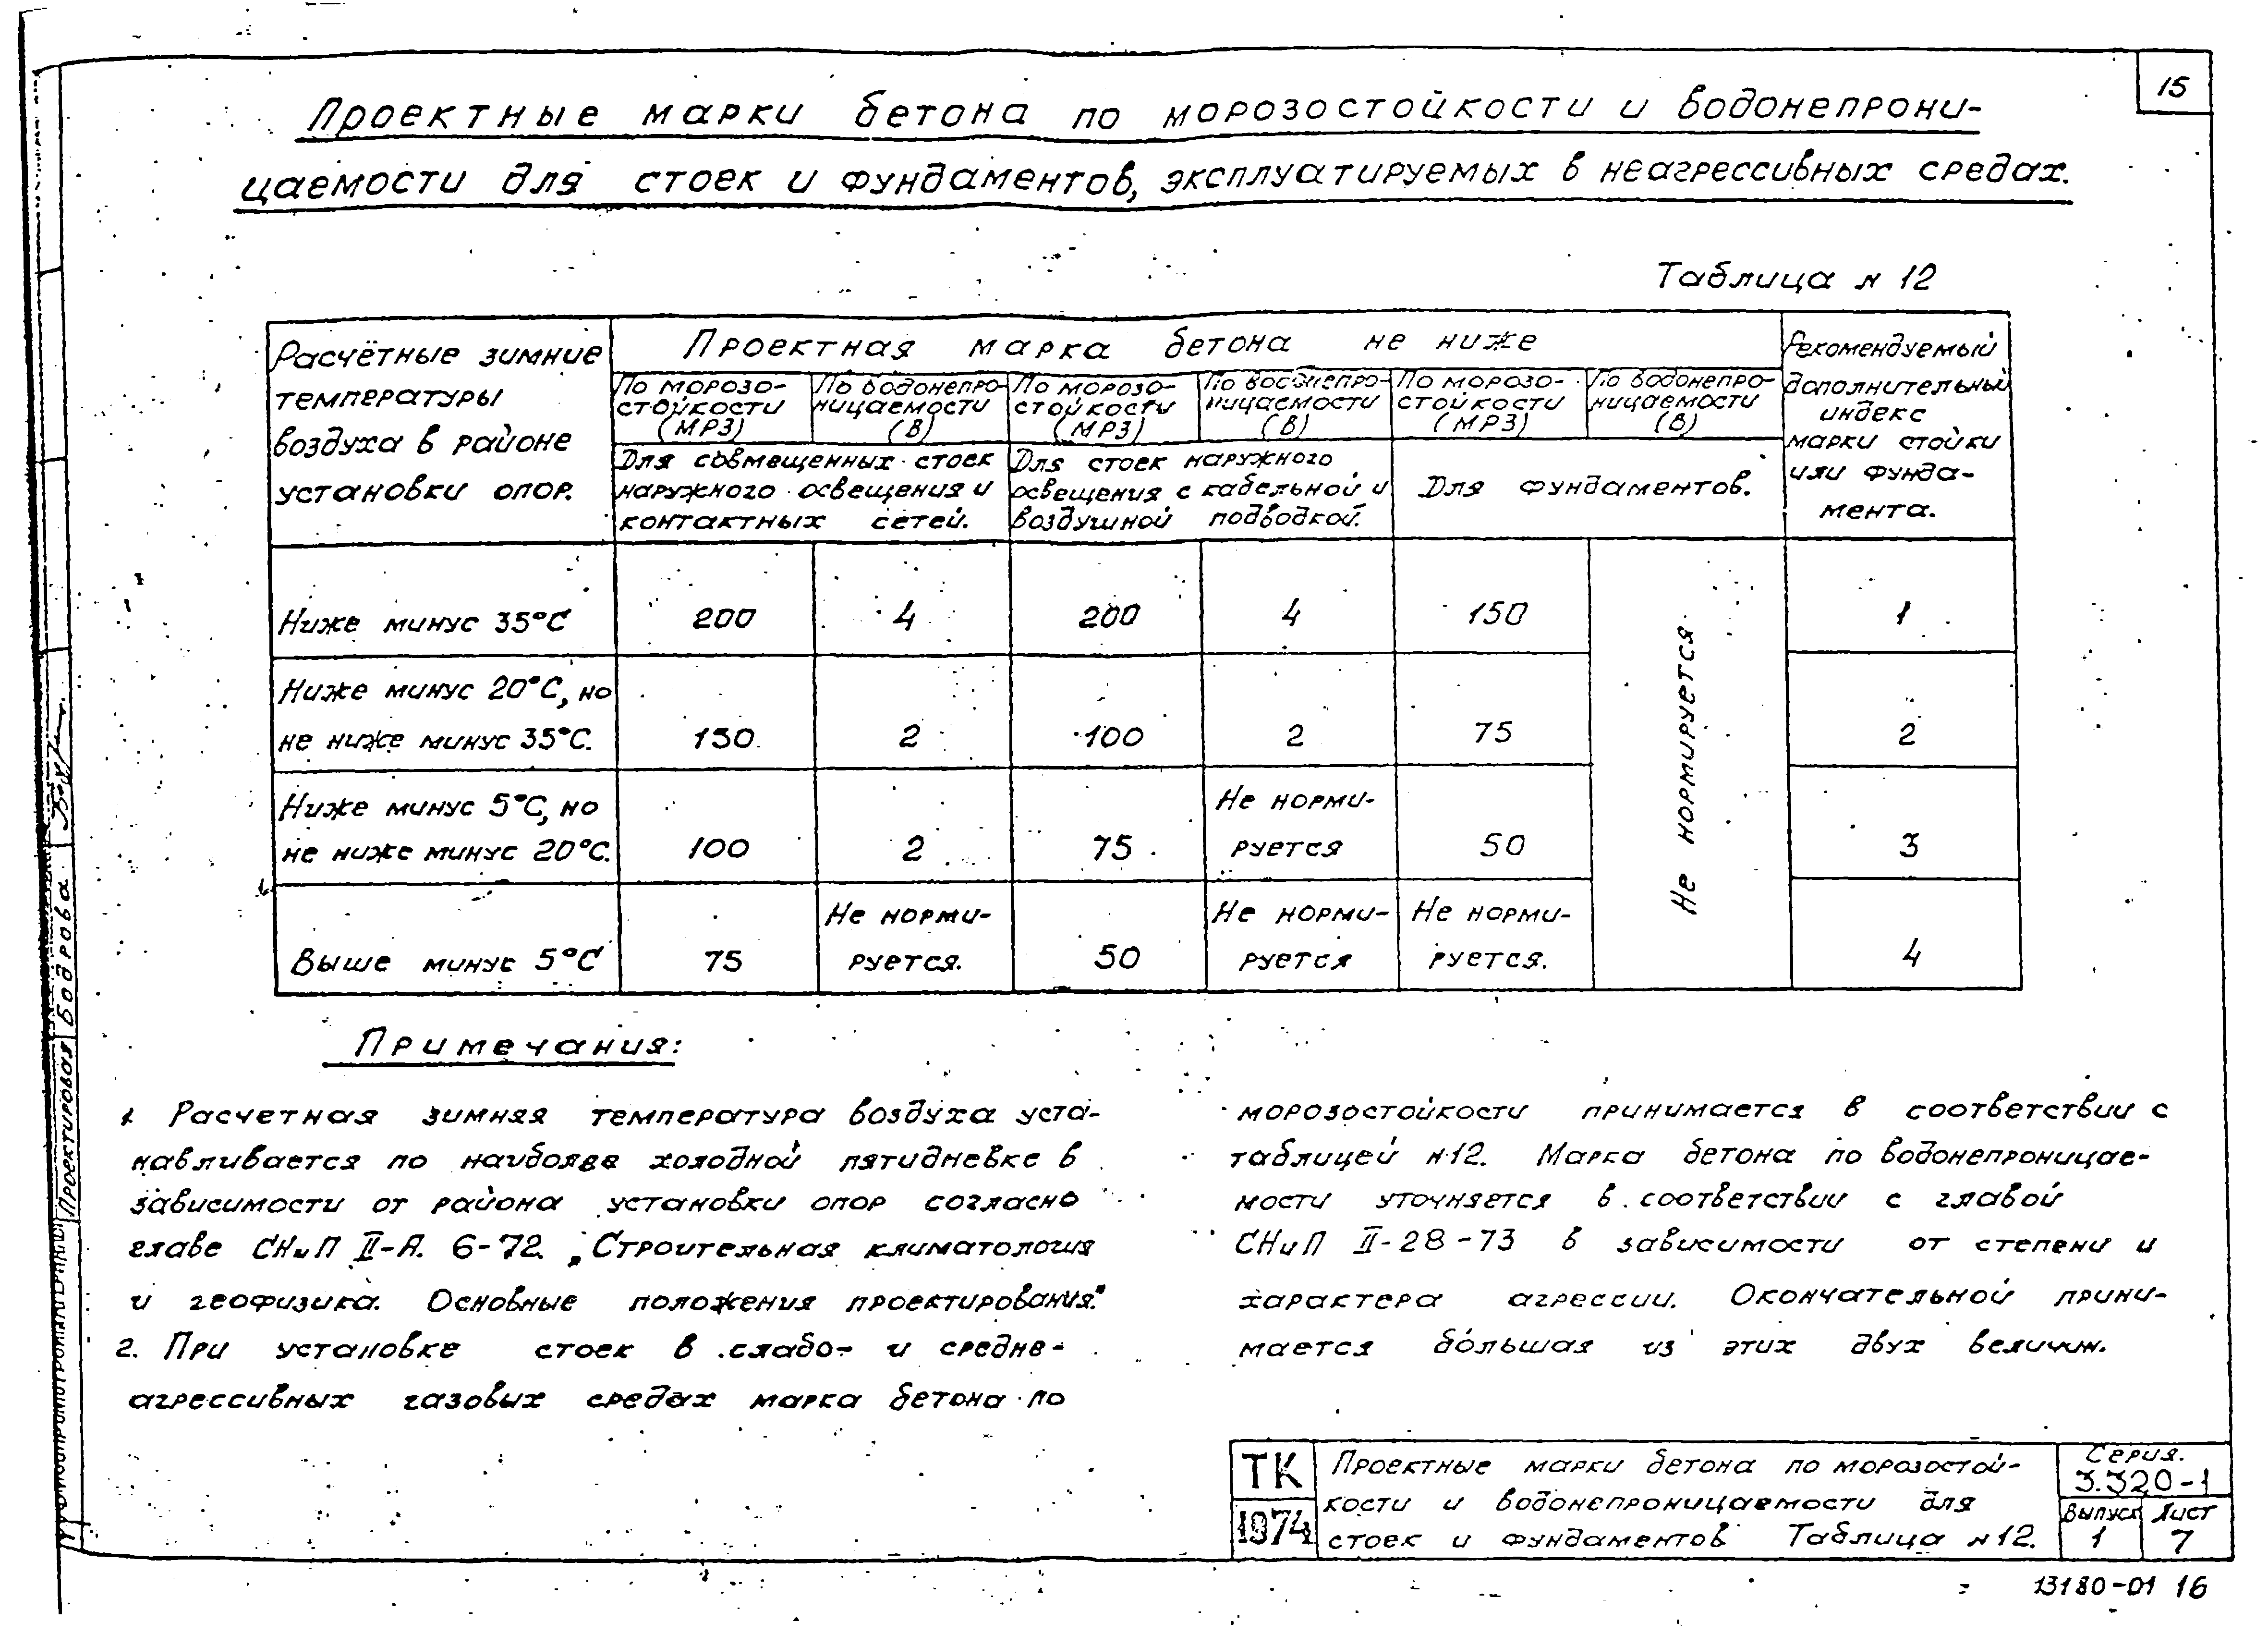 15
Проектные марки бетона по морозостойкости и водонепрони-
цаемости для стоек и фундаментов, эксплуатируемых в неагрессивных средах.
Таблица N 12
Расчётные зимние
температуры
воздуха в районе
установки опор.
Проектная марка бетона не ниже
По морозо-
стойкости
(МРЗ)
По водонепро-
ницаемости
(В)
По морозо-
стойкости
(МРЗ)
По водонепро-
ницаемости
(В)
По морозо-
стойкости
(МРЗ)
По водонепро-
ницаемости
(В)
Для совмещенных стоек
наружного освещения и
контактных сетей.
Для стоек наружного
освещения с кабельной и
воздушной подводкой.
Для фундаментов.
Рекомендуемый
дополнительный
индекс
марки стойки
или фунда-
мента.
Ниже минус 35°С 200 4 200 4 150 1
Ниже минус 20°С, но
не ниже минус 35°С. 150 2 100 2 75 2
Ниже минус 5°С, но
не ниже минус 20°С. 100 2 75 Не норми-
руется 50 3
Выше минус 5°С 75 Не норми-
руется. 50 Не норми-
руется Не норми-
руется. 4
Не нормируется
Примечания:
1 Расчетная зимняя температура воздуха уста-
навливается по наиболее холодной пятидневке в
зависимости от района установки опор согласно
главе СНиП II-А. 6-72. „Строительная климатология
и геофизика. Основные положения проектирования."
2. При установке стоек в слабо- и средне-
агрессивных газовых средах марка бетона по
морозостойкости принимается в соответствии с
таблицей N 12. Марка бетона по водонепроницае-
мости уточняется в соответствии с главой
СНиП II-28-73 в зависимости от степени и
характера агрессии. Окончательной прини-
мается большая из этих двух величин.
ТК
1974
Проектные марки бетона по морозостой-
кости и водонепроницаемости для
стоек и фундаментов Таблица N 12.
Серия.
3.320-1
Выпуск
1
Лист
7
13180-01 16
Проектировал
Бодрова